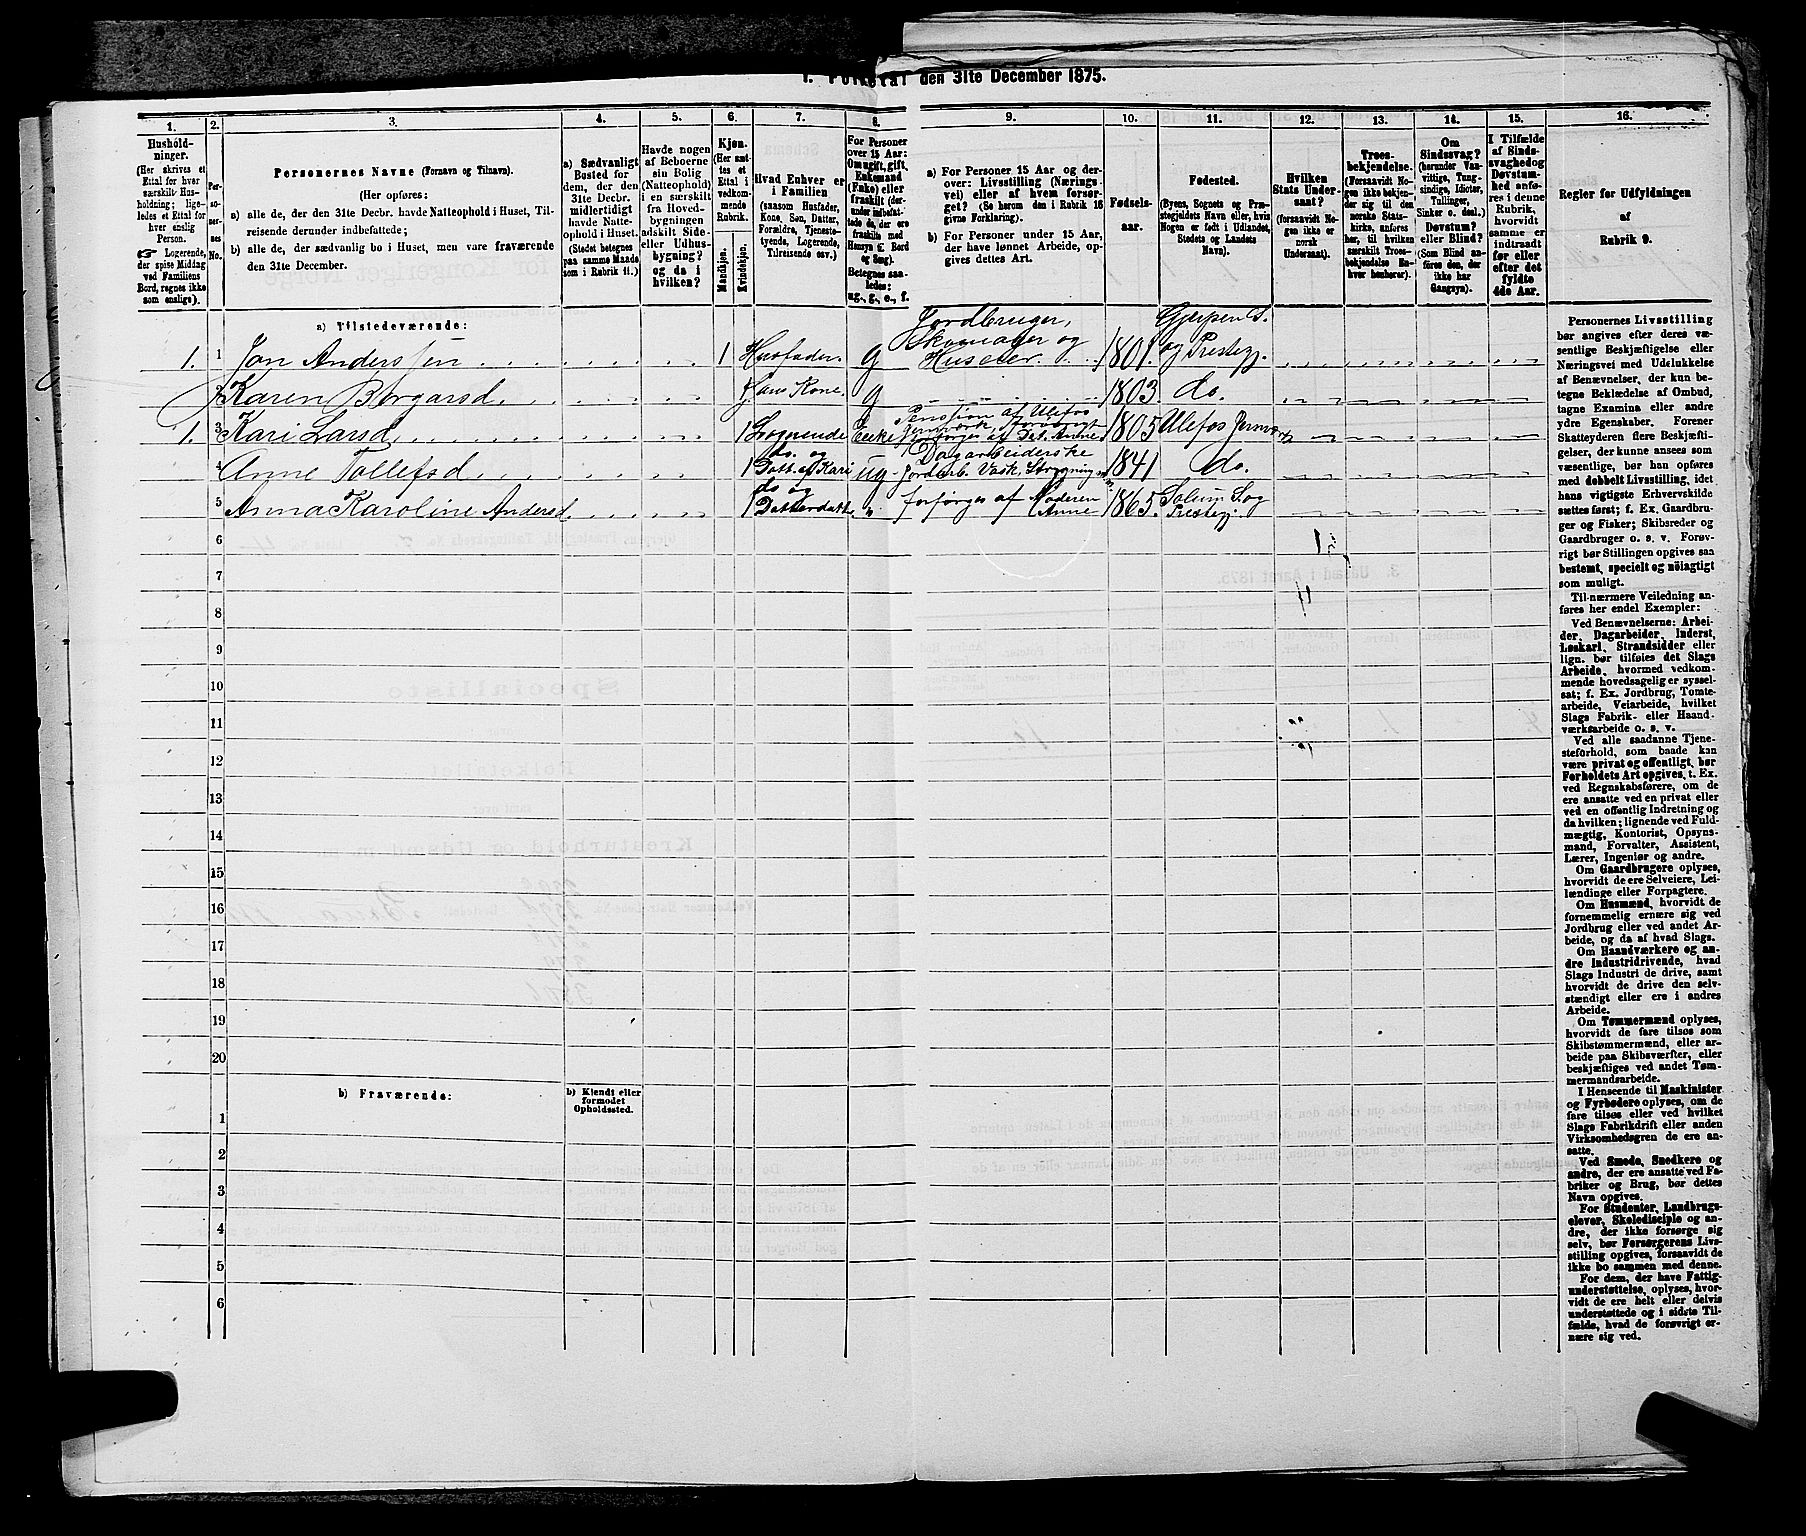 den 31te December 1875.
1.
2.
3.
4.
5.
6.
7.
8.
9.
10.
11.
12.
13.
14.
15.
16.
Hushold-
ninger.
(Her skrives et
Ettal for hver
særskilt Hus-
holdning; lige-
ledes et Ettal for
hver enslig
Person.
☞ Logerende,
der spise Middag
ved Familiens
Bord, regnes ikke
som enslige).
Per-
so-
ner-
nes
No.
Personernes Navne (Fornavn og Tilnavn).
(Her opføres:
a) alle de, der den 31te Decbr. havde Natteophold i Huset, Til-
reisende derunder indbefattede;
b) alle de, der sædvanlig bo i Huset, men vare fraværende
den 31te December.
a) Sædvanligt
Bosted for
dem, der den
31te Decbr.
midlertidigt
havde Natte-
ophold i Huset.
(Stedet betegnes
paa samme Maade
som i Rubrik 11.)
Havde nogen
af Beboerne
sin Bolig
(Natteophold)
i en særskilt
fra Hoved-
bygningen
adskilt Side-
eller Udhus-
bygning?
og da i
hvilken?
Kjøn.
(Her sæt-
tes et
Ettal i
vedkom-
mende
Rubrik.
Mandkjøn.
Kvindekjøn.
Hvad Enhver er
i Familien
(saasom Husfader,
Kone, Søn, Datter,
Forældre, Tjeneste-
tyende, Logerende,
Tilreisende osv.)
For Personer
over 15 Aar:
Om ugift, gift,
Enkemand
(Enke) eller
fraskilt (der-
under indbefat-
tede de, der ere
fraskilte med
Hensyn til Bord
og Seng).
Betegnes saa-
ledes:
ug., g., e., f.
a) For Personer 15 Aar og der-
over: Livsstilling (Nærings-
vei) eller af hvem forsør-
get? (Se herom den i Rubrik 16
givne Forklaring).
b) For Personer under 15 Aar,
der have lønnet Arbeide, op-
gives dettes Art.
Fødsels-
aar.
Fødested.
(Byens, Sognets og Præ-
stegjeldets Navn eller, hvis
Nogen er født i Udlandet,
Stedets og Landets
Navn).
Hvilken
Stats Under-
saat?
(forsaavidt No-
gen ikke er
norsk
Undersaat).
Troes-
bekjendelse.
(Forsaavidt No-
gen ikke bekjen-
der sig til den
norske Stats-
kirke, anføres
her, til hvilken
særskilt Troes-
bekjendelse En-
hver henhører).
Om
Sindssvag?
(herunder Van-
vittige, Tung-
sindige, Idioter,
Tullinger,
Sinker o. desl.)
Døvstum?
eller Blind?
(Som Blind an-
føres den, der
ikke har
Gangsyn).
I Tilfælde
af Sinds-
svaghed og
Døvstum-
hed anfø-
res i denne
Rubrik,
hvorvidt
samme er
indtraadt
før eller
efter det
fyldte
4de Aar.
Regler for Udfyldningen
af
Rubrik 9.
a) Tilstedeværende:
1. 1 Jon Anderssen 1 Husfader g Jordbruger, Skomager og Huseier 1801 Gjerpen S. og Prestegj.
2 Karen Borgarsd 1 Hans Kone g 1803 do.
1. 3 Kari Larsd 1 Logerende Enke Pension af Ulefos Jernværk, forøvrigt forsørges af Dat. Anne 1805 Ulefos Jernværk
4 Anne Tollefsd 1 do. og Datt. af Kari ug Dagarbeiderske Jordarb. Vask, Strygning 1841 do.
5 Anna Karoline Andersd 1 do og Datterdatt. " forsørges af Moderen Anne 1865 Solum S. og Prestegj.
6
7
8
9
10
11
12
13
14
15
16
17
18
19
20
b) Fraværende:
b) Kjendt eller
formodet
Opholdssted.
1
2
3
4
5
6
Personernes Livsstilling
bør angives efter deres væ-
sentlige Beskjæftigelse eller
Næringsvei med Udelukkelse
af Benævnelser, der kun be-
tegne Beklædelse af Ombud,
tagne Examina eller andre
ydre Egenskaber. Forener
Skatteyderen flere Beskjæfti-
gelser, der kunne ansees som
væsentlige, bør han opføres
med dobbelt Livsstilling, idet
hans vigtigste Erhvervskilde
sættes først; f. Ex. Gaardbru-
ger og Fisker; Skibsreder og
Gaardbruger o. s. v. Forøv-
rigt bør Stillingen opgives saa
bestemt, specielt og nöiagtigt
som muligt.
Til nærmere Veiledning an-
føres her endel Exempler:
Ved Benævnelserne: Arbei-
der, Dagarbeider, Inderst,
Løskarl, Strandsidder eller
lign. bør tilføies det Slags
Arbeide, hvormed vedkom-
mende hovedsagelig er syssel-
sat; f. Ex. Jordbrug, Tomte-
arbeide, Veiarbeide, hvilket
Slags Fabrik- eller Haand-
værksarbeide o. s. v.
Ved alle saadanne Tjene-
steforhold, som baade kan
være privat og offentligt, bør
Forholdets Art opgives, t. Ex.
ved Regnskabsførere, om de
ere ansatte ved en privat eller
ved en offentlig Indretning og
da hvilken; lignende ved Fuld-
mægtig, Kontorist, Opsyns-
mand, Forvalter, Assistent,
Lærer, Ingeniør og andre.
Om Gaardbrugere oplyses,
hvorvidt de ere Selveiere, Lei-
lændinge eller Forpagtere.
Om Husmænd, hvorvidt de
fornemmelig ernære sig ved
Jordbrug eller ved andet Ar-
beide, og da af hvad Slags.
Om Haandværkere og an-
dre Industridrivende, hvad
Slags Industri de drive, samt
hvorvidt de drive den selv-
stændigt eller ere i andres
Arbeide.
Om Tømmermænd oplyses,
hvorvidt de fare tilsøs som
Skibstømmermænd, eller ar-
beide paa Skibsværfter, eller
beskjæftiges ved andet Tøm-
mermandsarbeide.
I Henseende til Maskinister
og Fyrbødere oplyses, om de
fare tilsøs eller ved hvilket
Slags Fabrikdrift eller anden
Virksomhedsgren de ere an-
satte.
Ved Smede, Snedkere og
andre, der ere ansatte ved Fa-
briker og Brug, bør dettes
Navn opgives.
For Studenter, Landbrugs-
elever, Skoledisciple og an-
dre, der ikke forsørge sig
selv, bør Forsørgerens Livs-
stilling opgives, forsaavidt de
ikke bo sammen med denne.
For dem, der have Fattig-
understøttelse, oplyses, hvor-
vidt de ere helt eller delvis
understøttede og i sidste Til-
fælde, hvad de forøvrigt er-
nære sig ved.